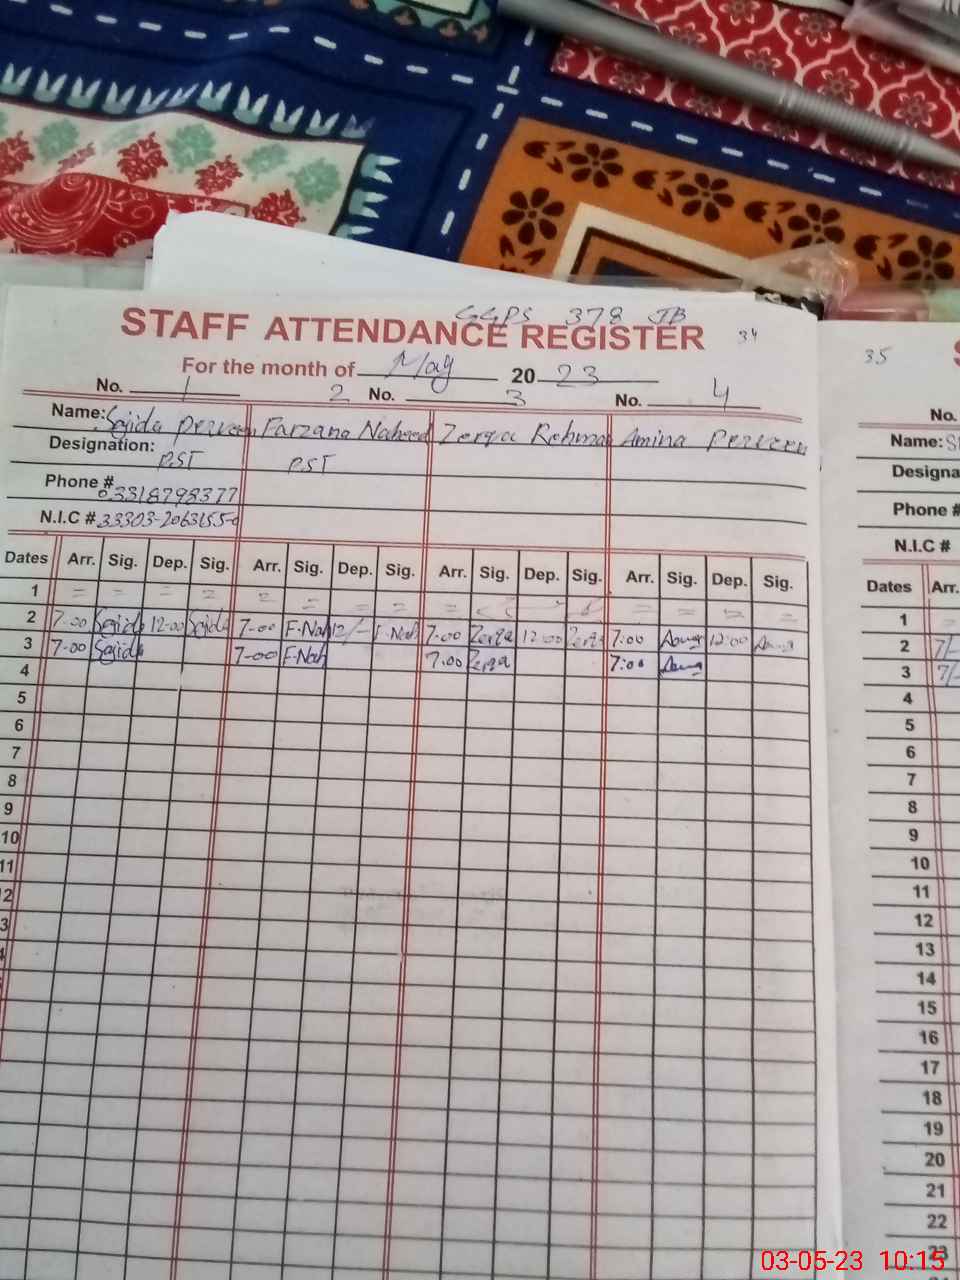 GGPS 378 JB
STAFF ATTENDANCE REGISTER 34
For the month of May 2023
No. 1 2 No. 3 No. 4
Name: Sajida Perveen Farzana Naheed Zerqa Rehman Amina Perveen
Designation: PST PST
Phone # 03318798377
N.I.C #
Dates Arr. Sig. Dep. Sig. Arr. Sig. Dep. Sig. Arr. Sig. Dep. Sig. Arr. Sig. Dep. Sig.
1 = = = = = = = = = = = = =
2 7-00 Sajida 12-00 Sajida 7-00 F-Nah 12/- F-Nah 7:00 Zerqa 12:00 Zerqa 7:00 12:00
3 7-00 Sajida 7-00 F-Nah 7.00 Zerqa 7:00
4
5
6
7
8
9
10
11
2
3
35
No.
Name: S
Designa
Phone #
N.I.C #
Dates Arr.
1
2 7/-
3 7/-
4
5
6
7
8
9
10
11
12
13
14
15
16
17
18
19
20
21
22
23
03-05-23 10:15